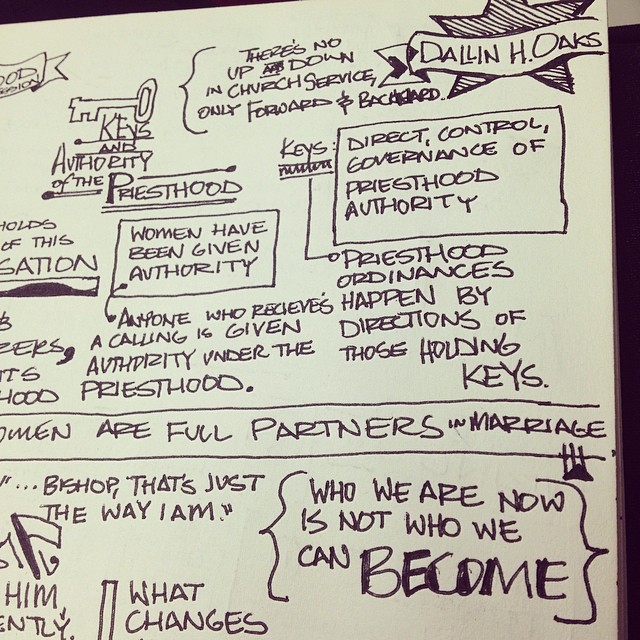 DALLIN H. OAKS
THERE'S NO
UP AND DOWN
IN CHURCH SERVICE,
ONLY FORWARD & BACKWARD..
KEYS
AND
AUTHORITY
OF THE PRIESTHOOD
KEYS:
DIRECT, CONTROL,
GOVERNANCE OF
PRIESTHOOD
AUTHORITY
HOLDS
OF THIS
SATION
WOMEN HAVE
BEEN GIVEN
AUTHORITY
ANYONE WHO RECIEVE'S
A CALLING IS GIVEN
AUTHORITY UNDER THE
PRIESTHOOD.
PRIESTHOOD
ORDINANCES
HAPPEN BY
DIRECTIONS OF
THOSE HOLDING
KEYS.
ZERS,
ITS
HOOD
OMEN ARE FULL PARTNERS IN MARRIAGE
"... BISHOP, THAT'S JUST
THE WAY I AM."
WHO WE ARE NOW
IS NOT WHO WE
CAN BECOME
HIM
ENTLY.
WHAT
CHANGES